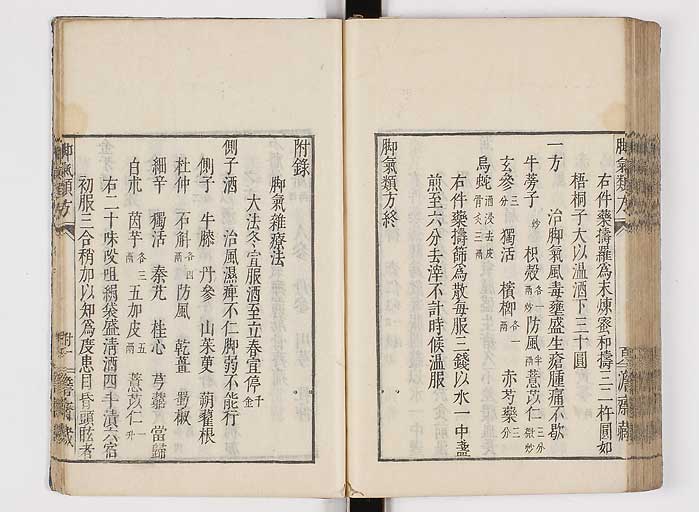 脚氣類方
右件藥擣羅爲末煉蜜和擣三二杵圓如
梧桐子大以温酒下三十圓
一方 治脚氣風毒壅盛生瘡腫痛不歇
牛蒡子炒 枳殻各一兩炒 防風半兩 薏苡仁三分微炒
玄參三分 獨活 檳榔各一兩 赤芍藥三分
烏蛇酒浸去皮骨炙三兩
右件藥擣篩爲散每服三錢以水一中盞
煎至六分去滓不計時候温服
脚氣類方終
附錄
脚氣雜療法
大法冬宜服酒至立春宜停千金
側子酒 治風濕痺不仁脚弱不能行
側子 牛膝 丹參 山茱萸 蒴藋根
杜仲 石斛各四兩 防風 乾薑 蜀椒
細辛 獨活 秦艽 桂心 芎藭 當歸
白朮 茵芋各三兩 五加皮五兩 薏苡仁一升
右二十味㕮咀絹袋盛清酒四斗漬六宿
初服三合稍加以知爲度患目昏頭眩者
脚氣類方
附一